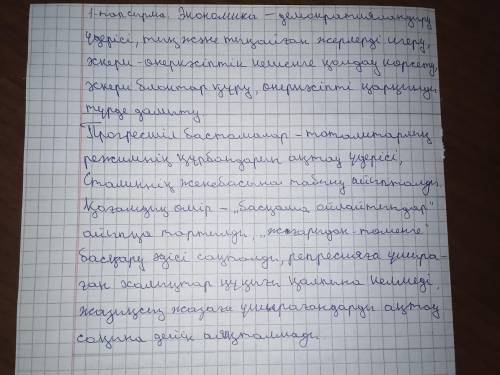 1-тапсырма. Экономика – демократияландыру
үдерісі, тың және тыңайған жерлерді игеру,
әскери-өнеркәсіптік кешенге қолдау көрсету,
әскери блоктар құру, өнеркәсіпті қарқынды
түрде дамыту
Прогресшіл бастамалар – тоталитарлық
режимнің құрбандарын ақтау үдерісі,
Сталиннің жекебасына табыну айыпталды.
Қоғамдық өмір – „басқаша ойлайтындар"
айыпқа тартылды, „жоғарыдан-төменге"
басқару әдісі сақталды, репрессияға ұшыра-
ған халықтар құқығы қалпына келмеді,
жазықсыз жазаға ұшырағандарды ақтау
соңына дейін аяқталмады.